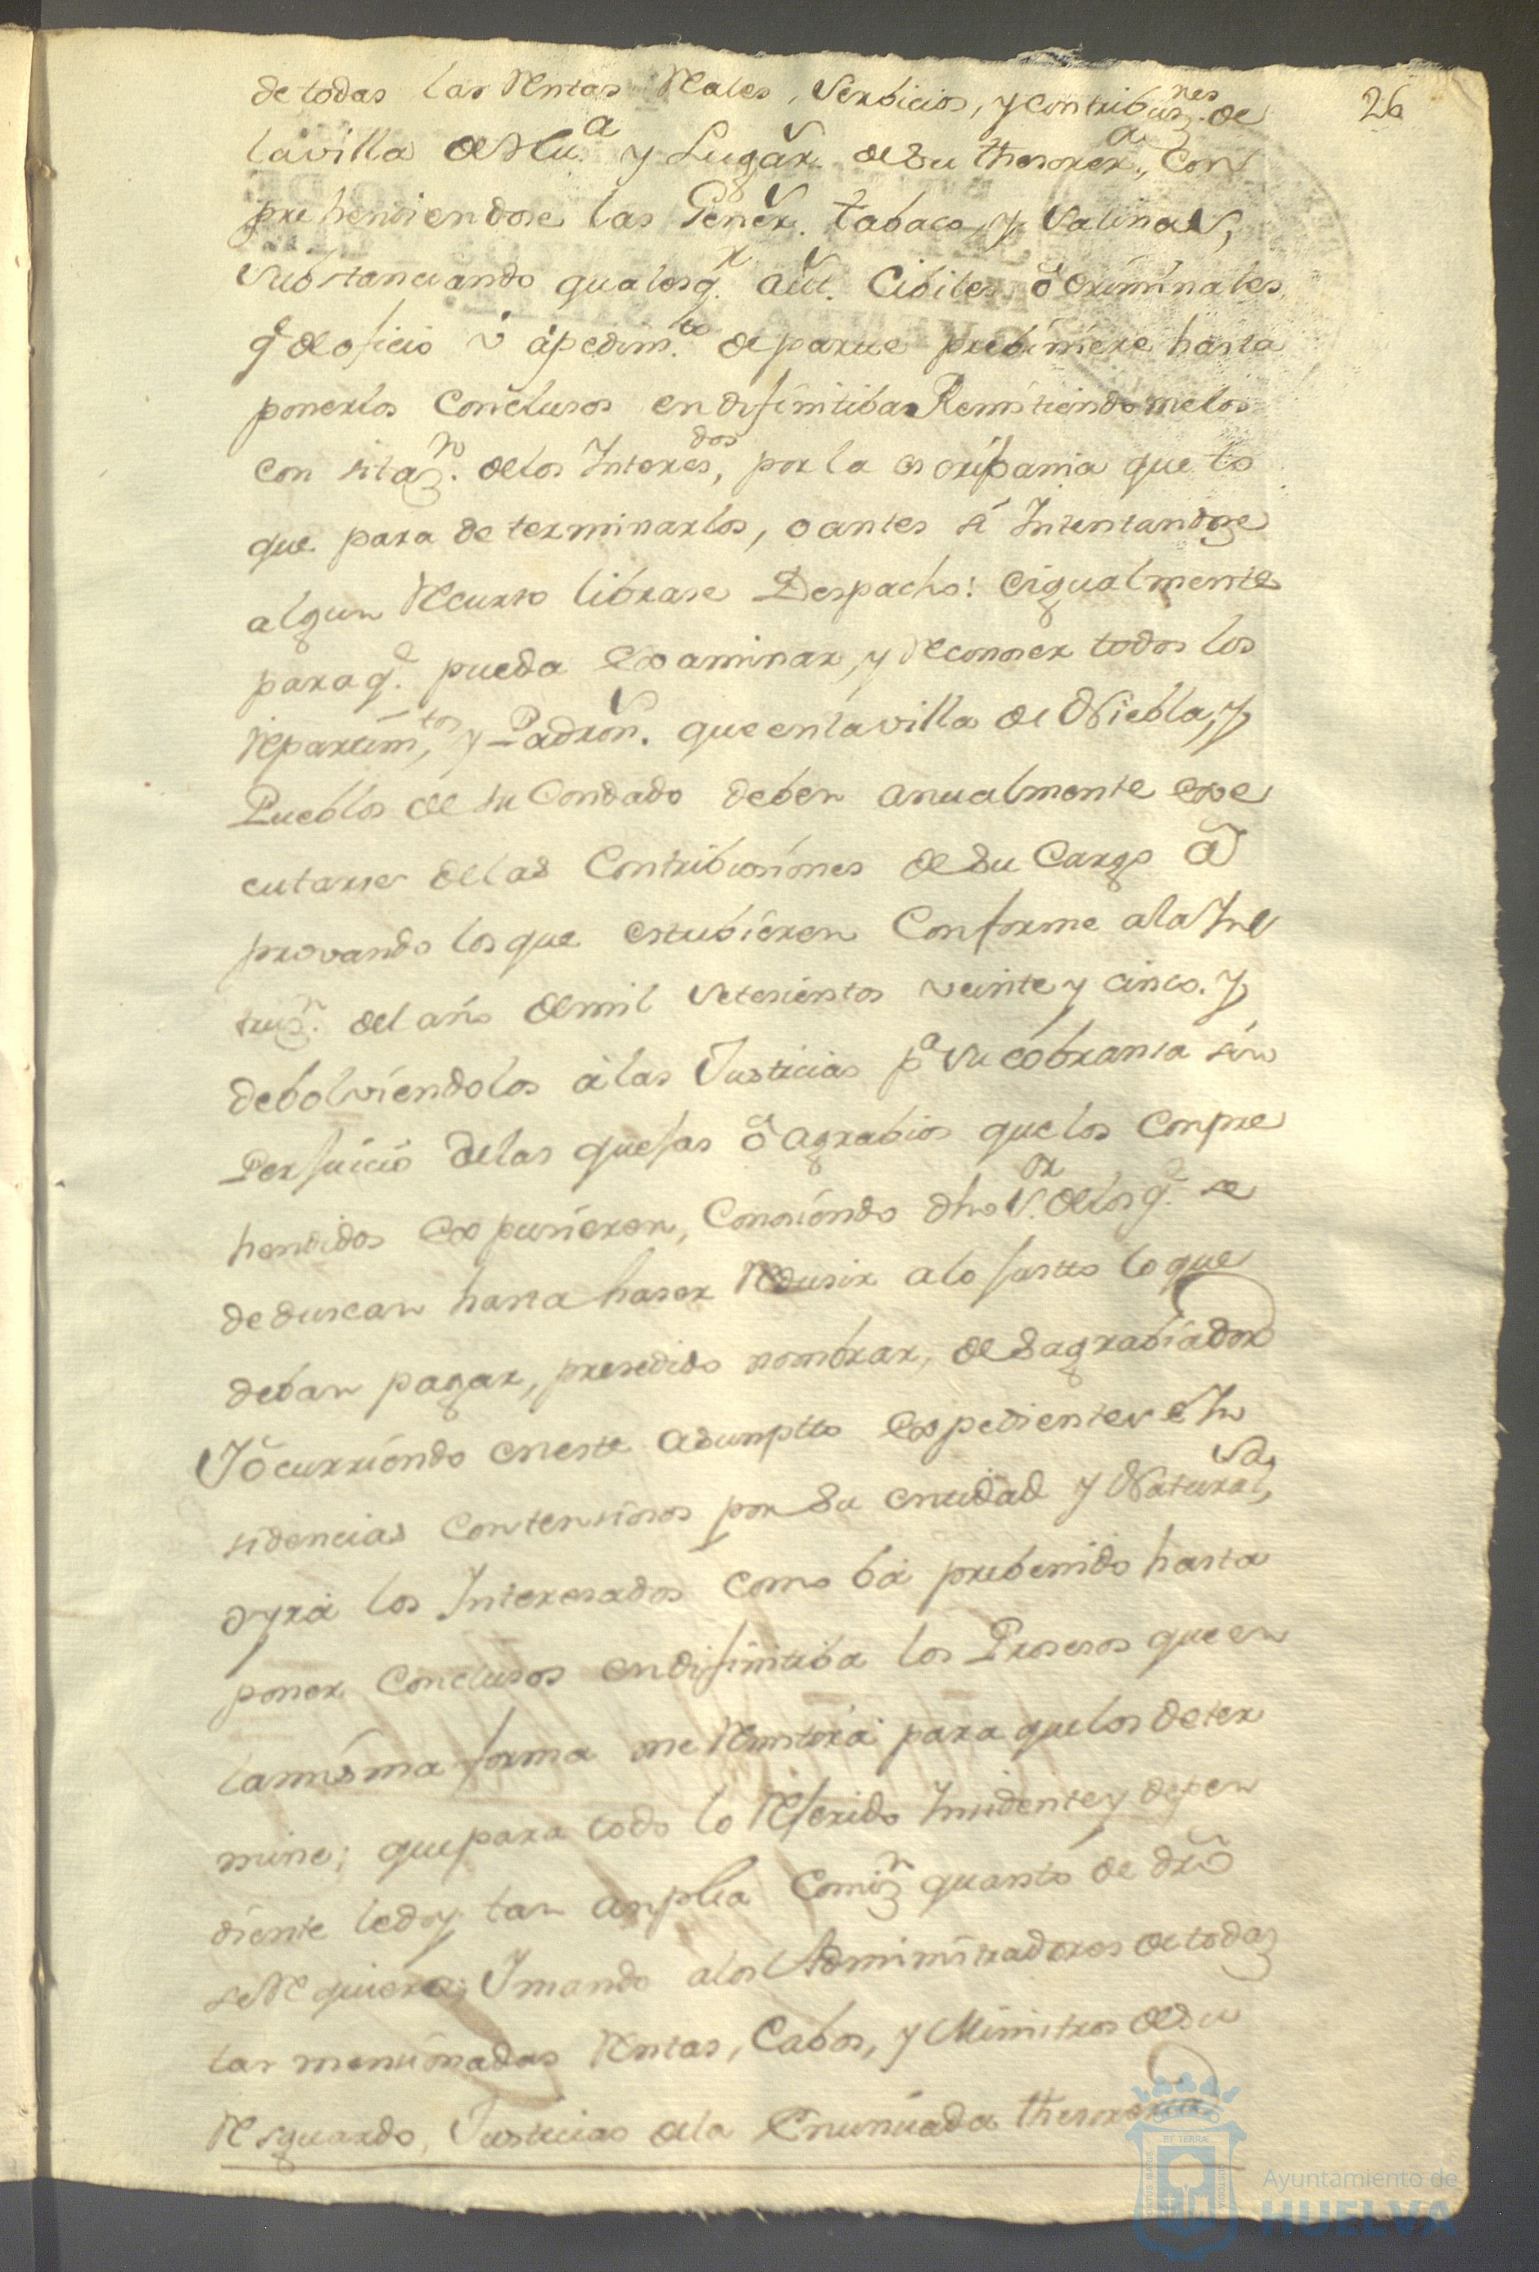 26
de todas las Rentas Reales, Serbicios, y contribuz.nes de
la villa de Hu.a y Lugar.s de su thesorer.a, Con
prehendiendose las Gener.s tabaco, y Salinas,
Substanciando qualesq.r aut.s Cibiles ô Criminales
q.e de oficio ù â pedim.to de parte prebiniere hasta
ponerlos Conclusos en difinitiba Remitiendomelos
con sitaz.n de los Interes.dos, por la escribania que to
que para determinarlos, o antes si Intentandose
algun Recurso librase Despacho: e igualmente
para q.e pueda Examinar, y Reconoser todos los
Repartim.tos, y Padron.s que en la villa de Niebla, y
Pueblos de su Condado deben anualmente exe
cutarse de las Contribusiones de su Cargo a
provando los que estubieren Conforme a la Ins
truz.n del año de mil setesientos veinte y cinco. Y
debolviendolos â las Justicias p.a su cobransa sin
Perjuicio de las quejas ô agrabios que los Conpre
hendidos Expusieren, Conosiendo dho S.or de los q.e se
deduscan hasta haser Redusir a lo justto lo que
deban pagar, presedido nombrar, desagrabiador
Y ôcurriendo en este asumptto Expedientes ê In
sidencias Contensiosos por su entidad y Natural.sa,
oyrá los Interesados como bá prebenido hasta
poner Conclusos en difinitiba los Prosesos que en
la misma forma me Remitirá para que los deter
mine; que para todo lo Referido Insidente y depen
diente le doy tan anplia Comiz.n quanto de dro
se Requiera; Y mando a los Administradores de todas
las mensionadas Rentas, Cabos, y Ministros de su
Resguardo, Justicias de la Enunciada thesoreria
Ayuntamiento de
HUELVA